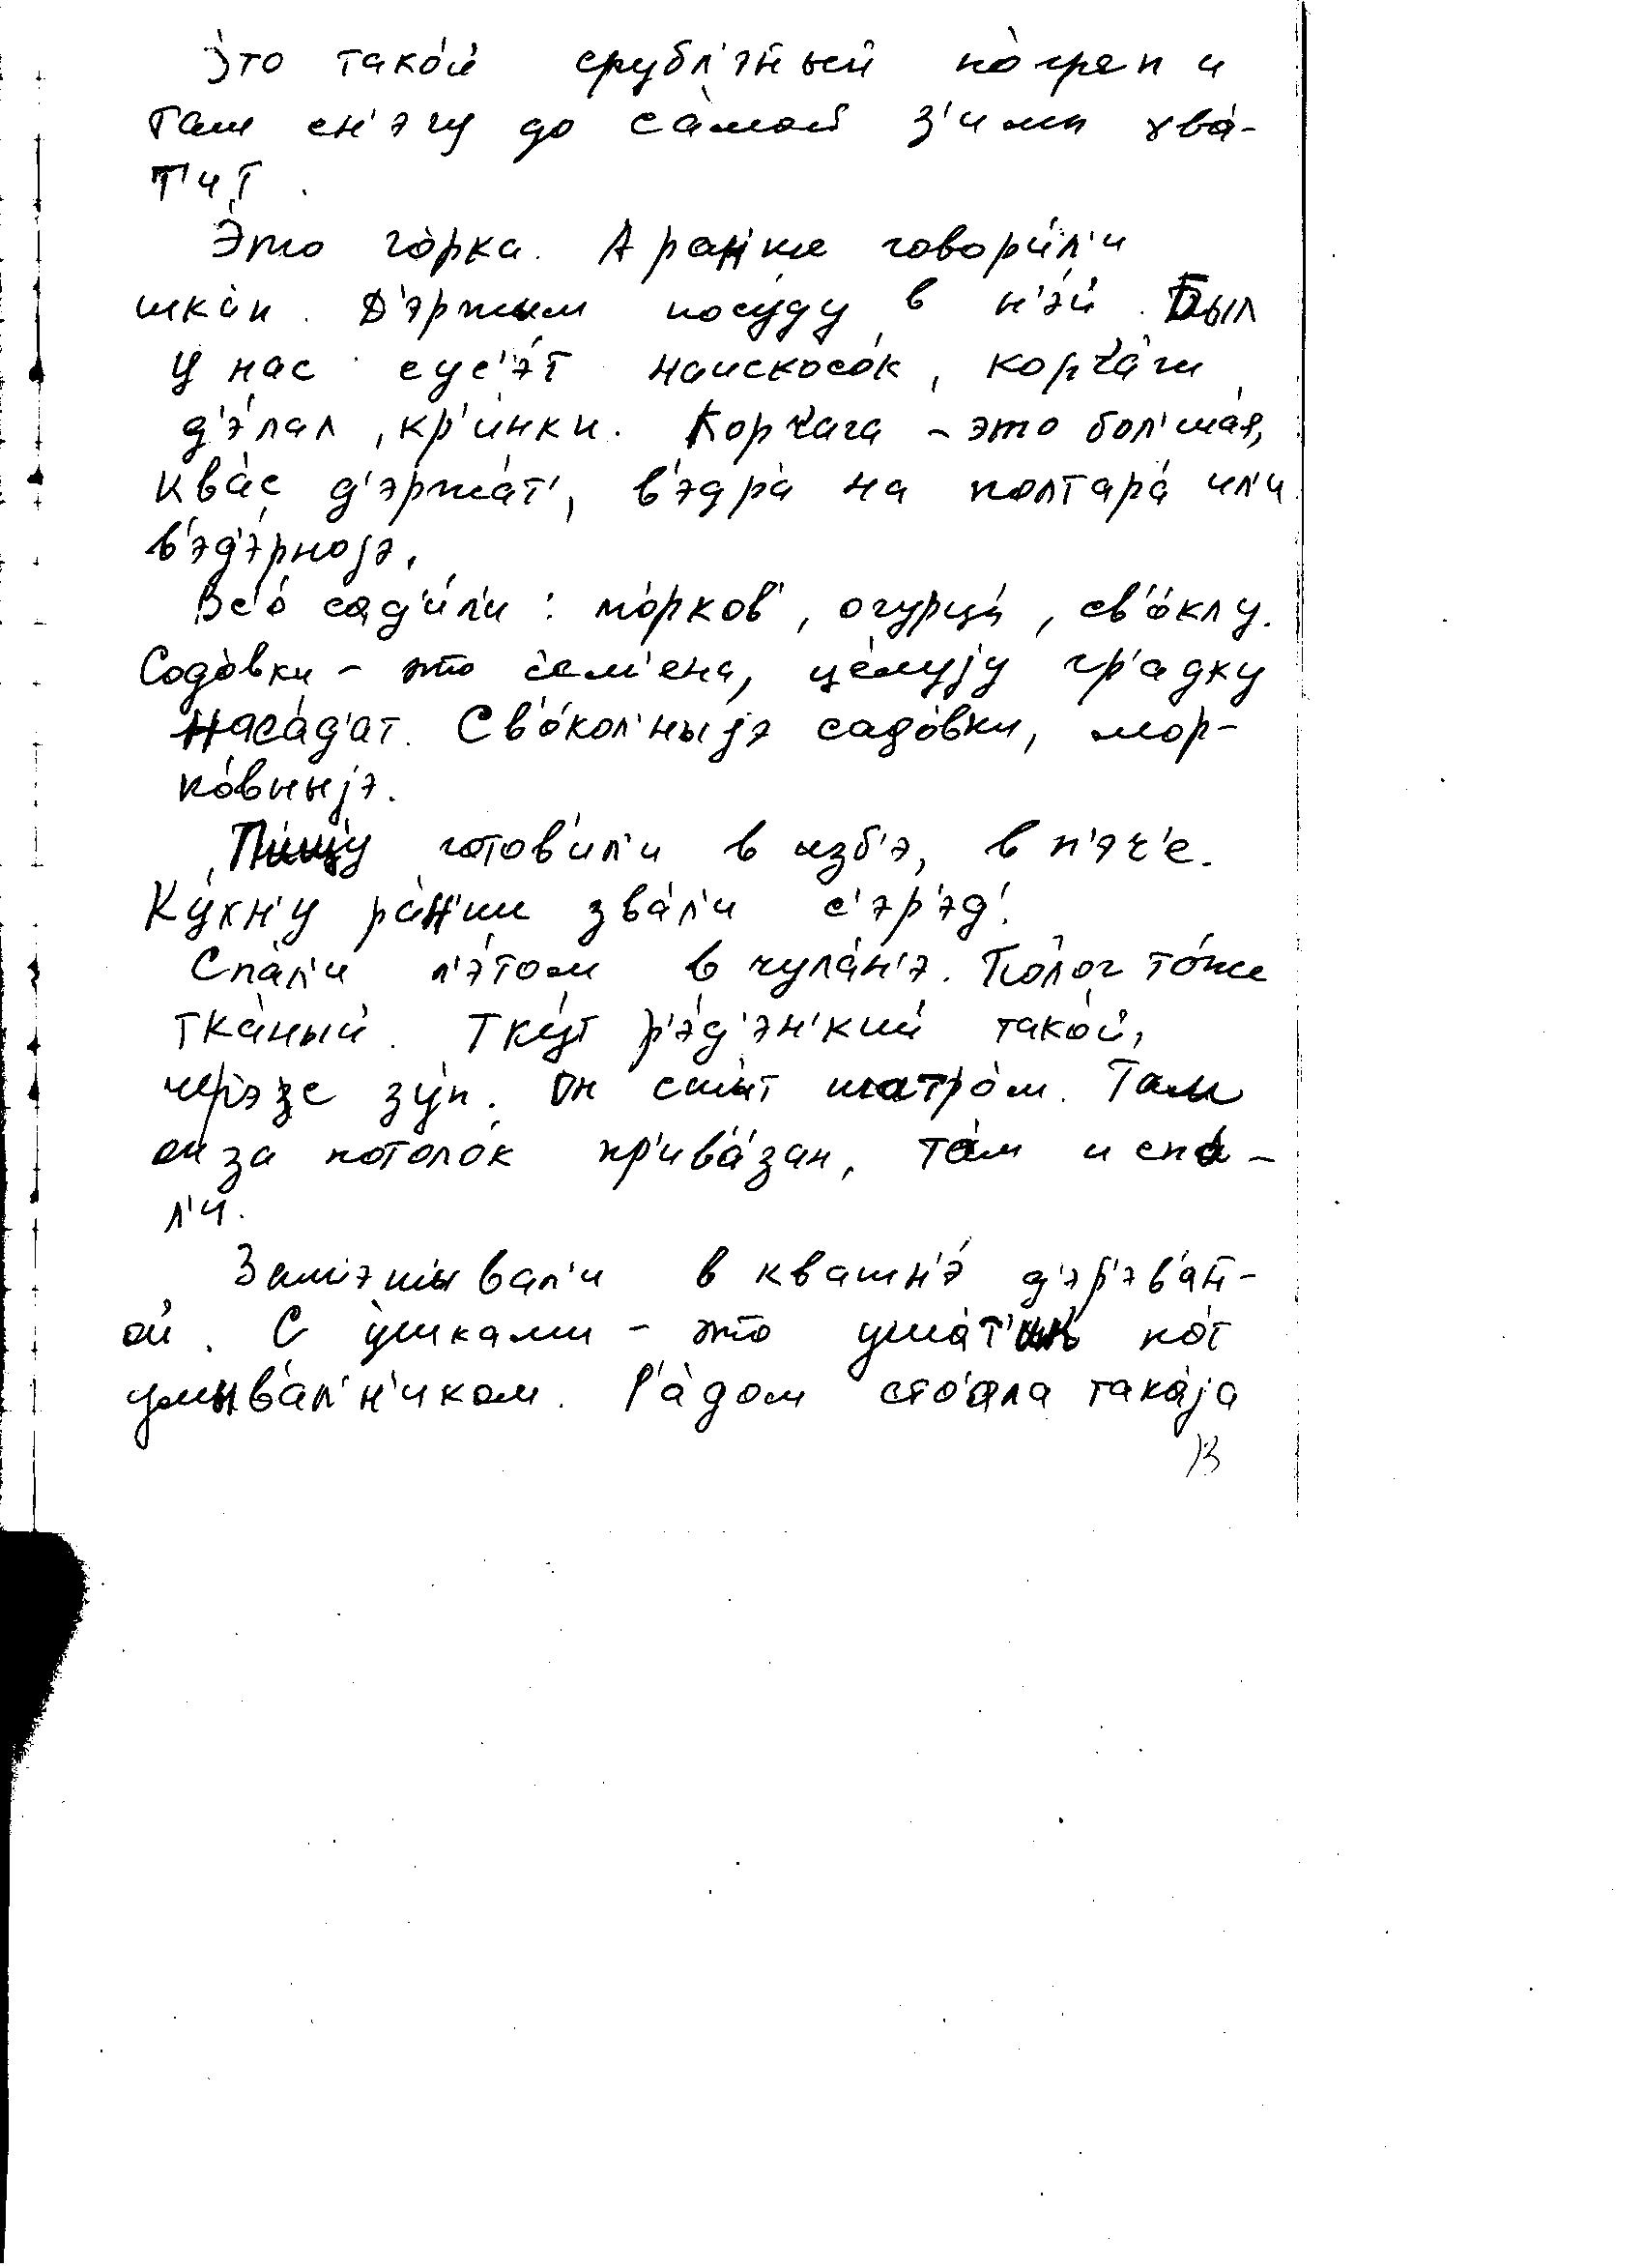 Э́то тако́й срубл'эн̄ый по́греп и
там сн'эгу до са́мой з'имы хва́-
т'ит.
Э́то го́рка. А ран'ше говори́л'и
шка́п. Д'э́ржым посу́ду в н'э́й. Был
у нас сус'э́т наискосо́к, корча́ги
д'э́лал, кр'и́нки. Корчага – это бол'ша́я,
ква́с д'эржа́т', в'эдра́ на полтара́ ил'и
в'эд'э́рнојэ.
Вс'о́ сад'и́л'и: мо́рков', огурцы́, св'о́клу.
Содо́вки – это сем'ена, це́луjу гр'адку
наса́д'ат. Св'о́кол'ныjэ садо́вки, мор-
ко́вныjэ.
Пи́щу готов'ил'и в изб'э, в п'эч'е.
Ку́хн'у ра́н'ши зва́л'и с'эр'эд'.
Спа́л'и л'э́том в чула́н'э. По́лог то́же
тка́ный. Тку́т р'э́д'эн'кий тако́й,
чер'эзс зу́п. Он сшы́т шатро́м. Там
он за потоло́к пр'ив'а́зан, та́м и спа́-
л'и.
Зам'э́шывал'и в квашн'э́ д'эр'эв'а́н̄-
ой. С у́шками – это уша́т'ик по́т
умыва́л'н'иком. Р'а́дом сто́яла така́jа
13